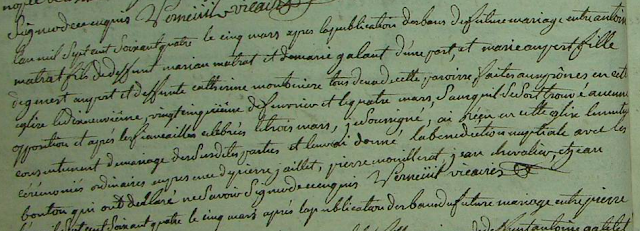 signer de ce enquis Verneüil vicaire
L'an mil sept cent soixant quatre le cinq mars après la publication des bans du future mariage entre antoine
matrat fils du deffunt marian matrat et de marie galant d'une part, et marie aupert fille
de gilbert aupert et deffunte catherine montniere tous deux de cette paroisse faites aux prônes en cette
eglise le dixneuvième, vingtsixième de fevrier et le quatre mars, sans quil se soit trouvé aucune
opposition et après les fiancailles celebrées le trois mars, je soussigné, ai reçu en cette eglise le mutuel
consentement de mariage des susdites parties et leur ai donné la benediction nuptiale avec les
cérémonies ordinaires en presence de pierre jaillet, pierre mouillerat, jean chevalier, et jean
bonton qui ont declaré ne savoir signer de ce enquis Verneüil vicaire
L'an mil sept cent soixant quatre le cinq mars après la publication des bans du future mariage entre pierre